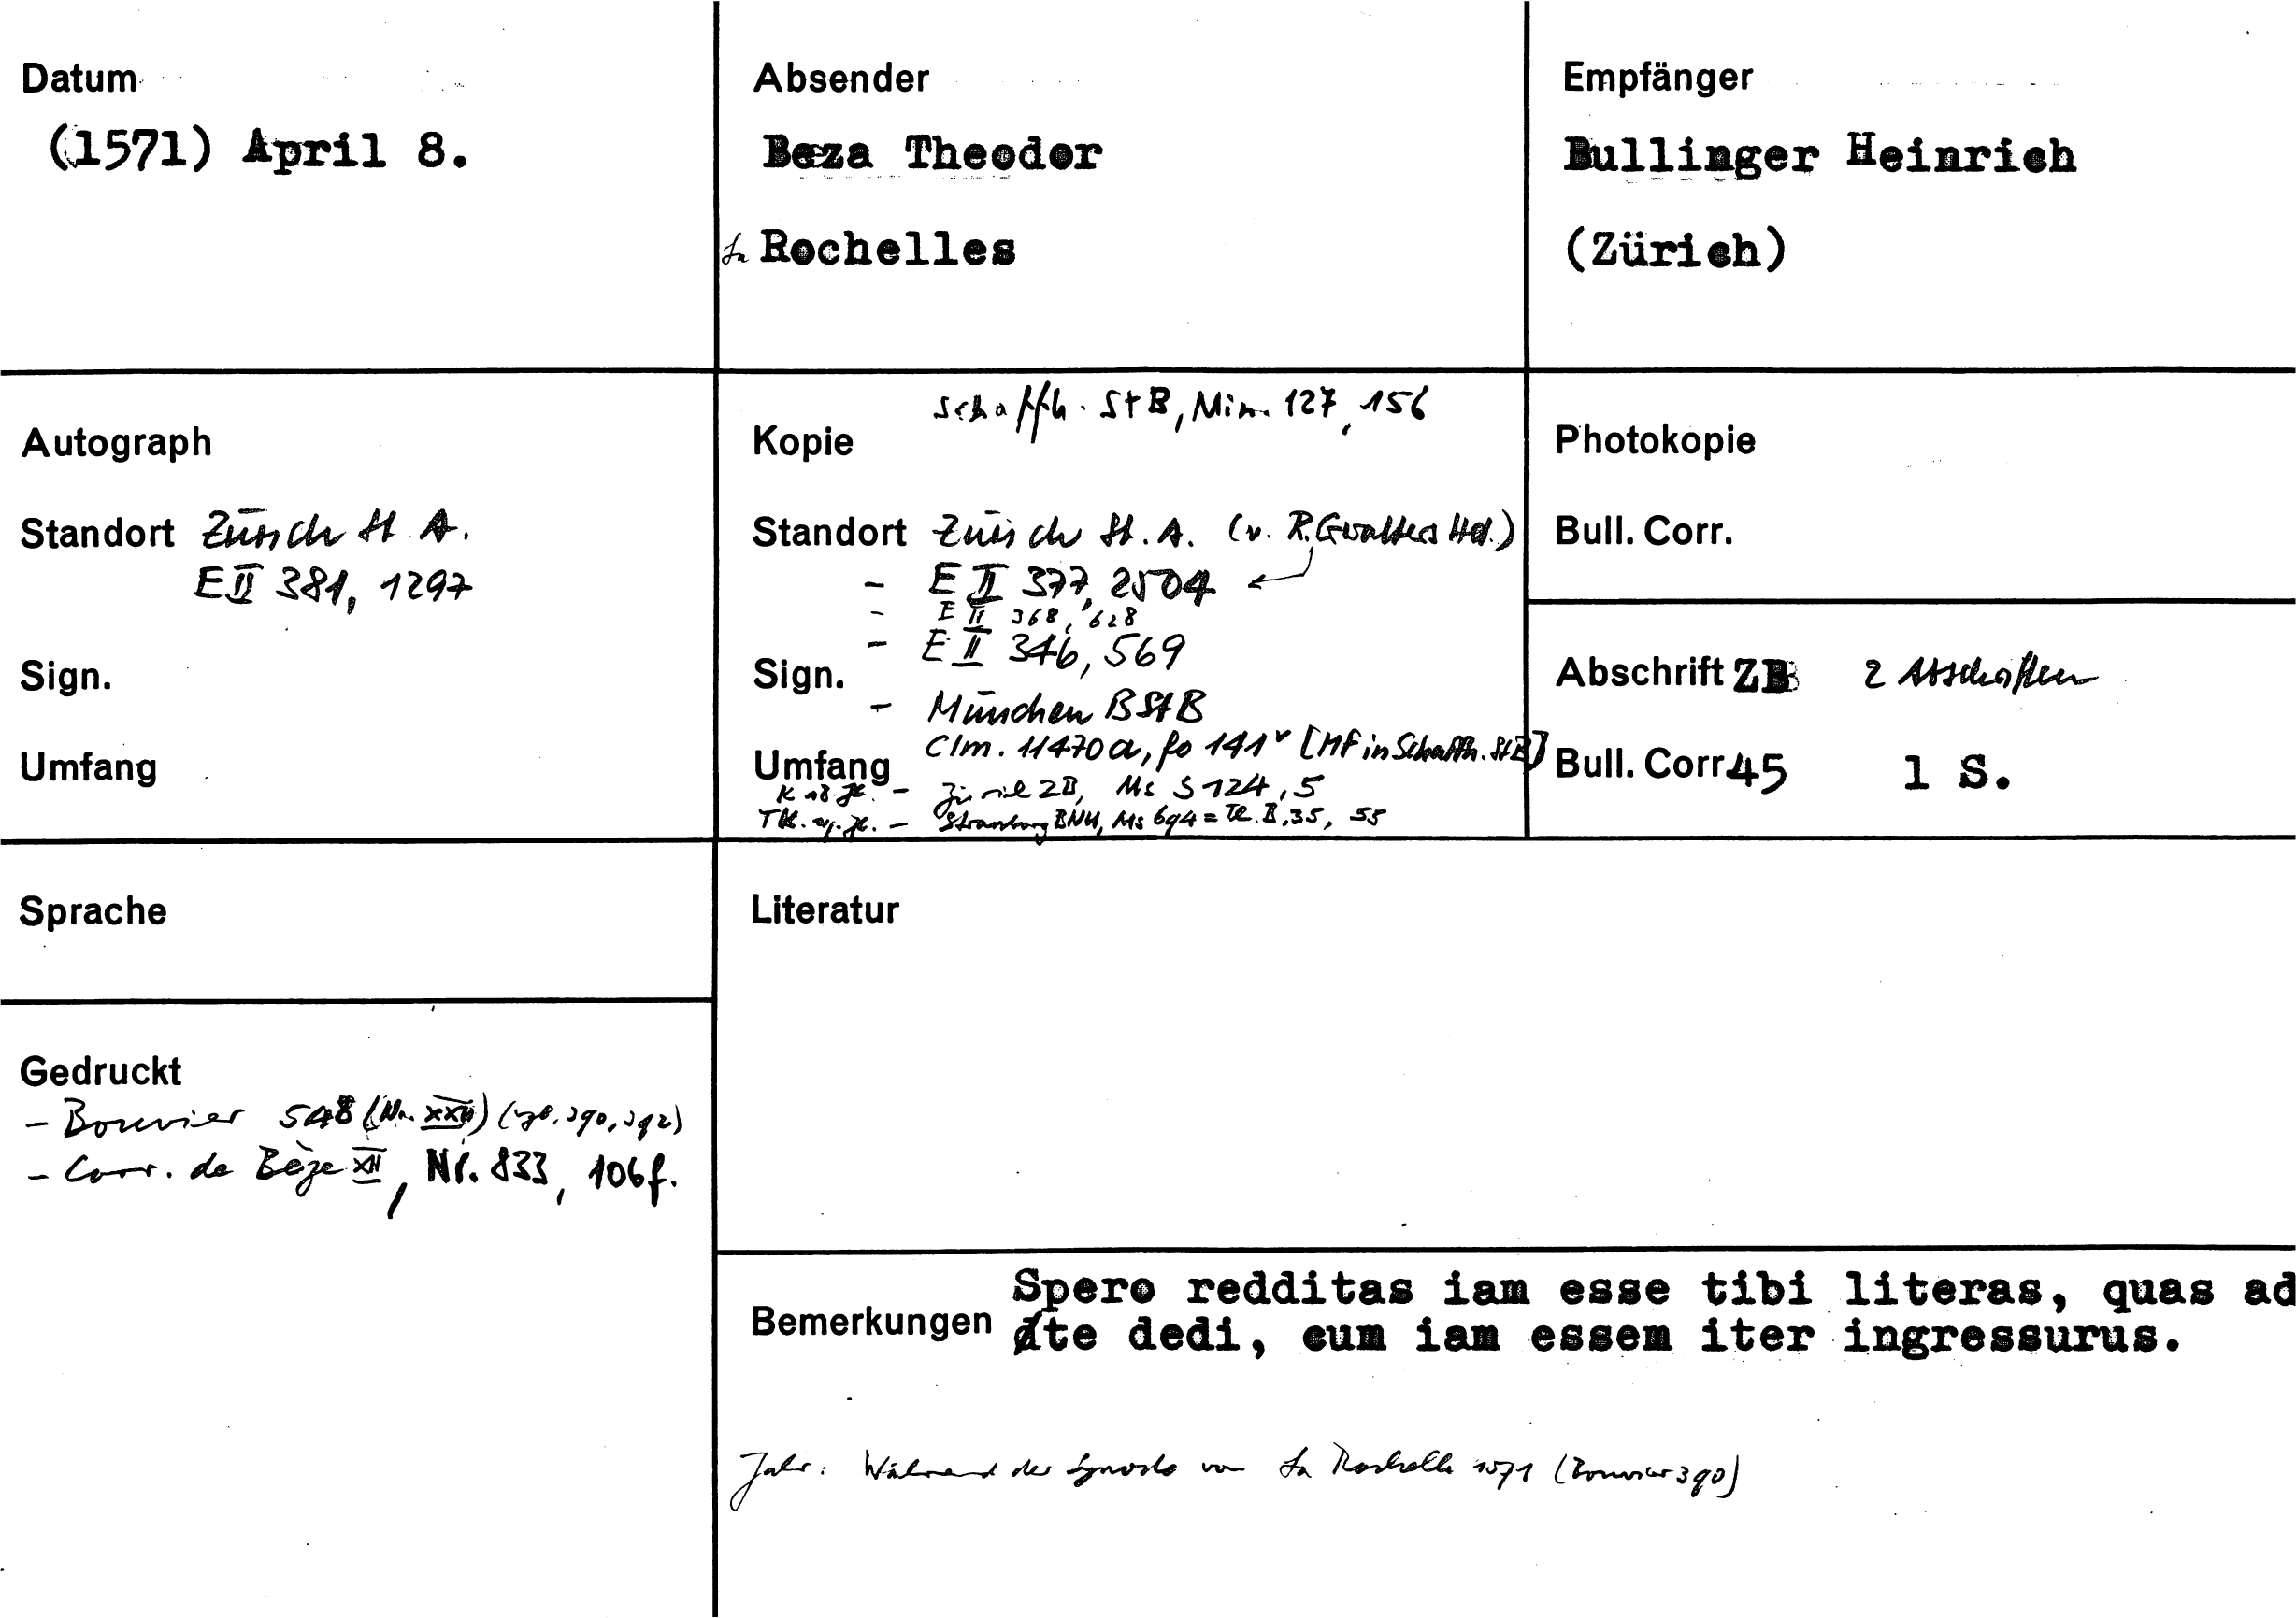 Datum
(1571) April 8.
Absender
Beza Theodor
La Rochelles
Empfänger
Bullinger Heinrich
(Zürich)
Autograph
Standort Zürich St A.
E II 381, 1297
Sign.
Umfang
Schaffh. StB, Min. 127, 156
Kopie
Standort Zürich St. A. (v. R. Gwalters Hd.)
- E II 377, 2504
- E II 368, 628
- E II 346, 569
Sign.
- München BStB
Clm. 11470a, fo 141v [MF in Schaffh. StB]
Umfang
K 18. Jh. - Zürich ZB, Ms S 124, 5
- Strassburg BNU, Ms 694 = Th. B, 35, 55
Photokopie
Bull. Corr.
Abschrift ZB 2 Abschriften
Bull. Corr 45 1 S.
Sprache
Gedruckt
- Bouvier 548 (Nr. XXII) (390, 392)
- Corr. de Bèze XII, Nr. 833, 106f.
Literatur
Bemerkungen
Spero redditas iam esse tibi literas, quas ad
te dedi, cum iam essem iter ingressurus.
Jahr: Während der Synode von La Rochelle 1571 (Bouvier 390)